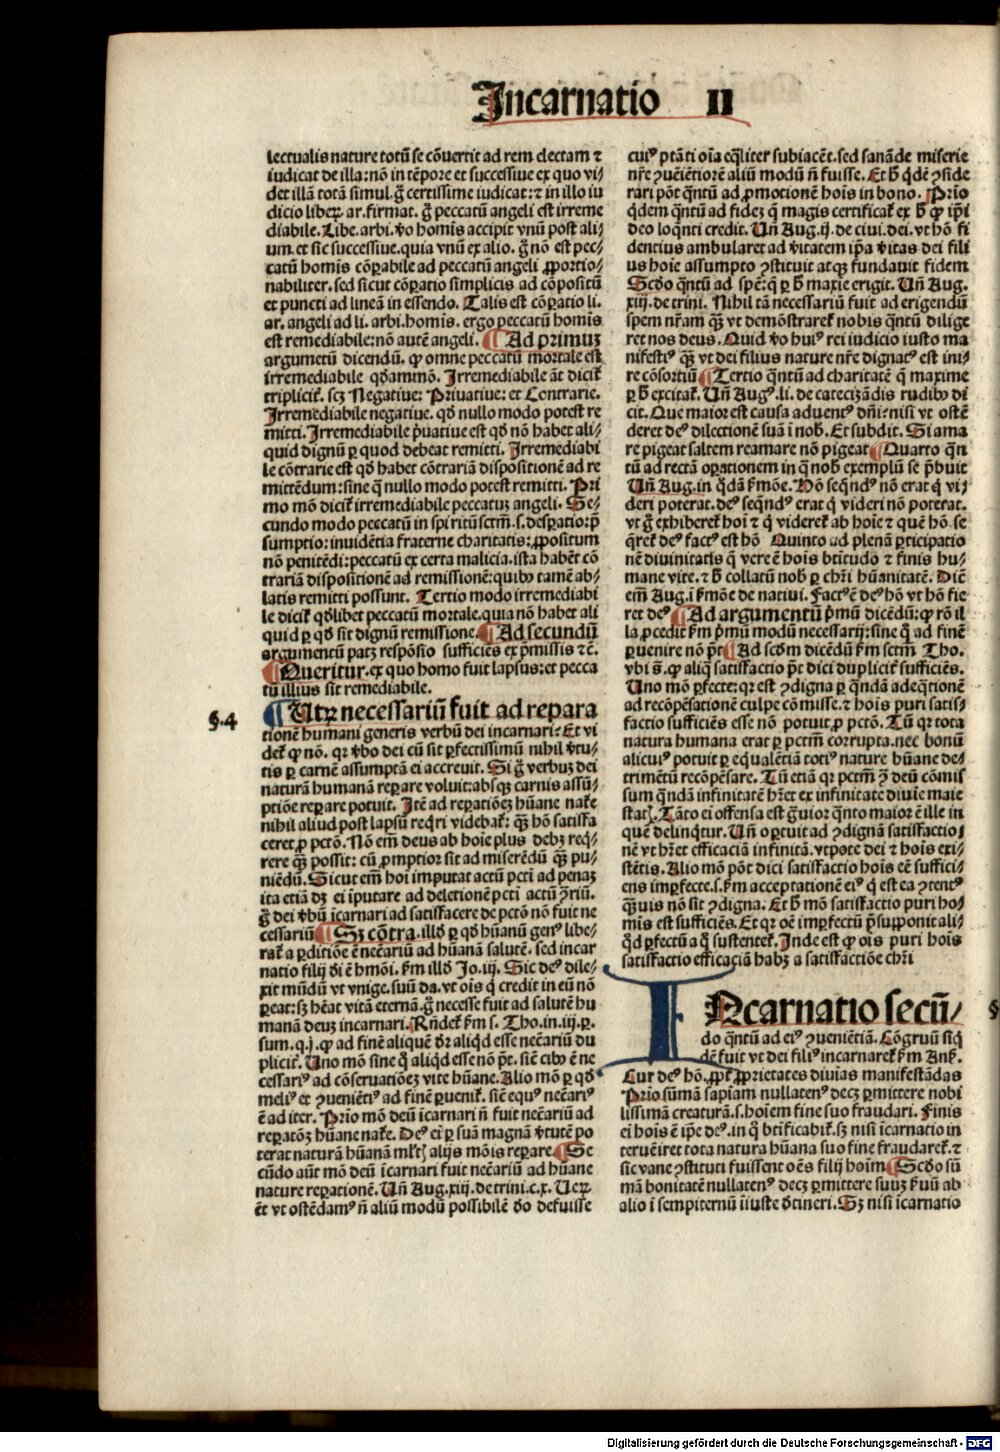 Incarnatio II
lectualis nature totũ se cõvertit ad rem electam ⁊
iudicat de illa: nõ in tẽpore et successiue ex quo vi⸗
det illã totã simul. g̃ certissime iudicat: ⁊ in illo iu
dicio liberꝝ ar. firmat. g̃ peccatũ angeli est irreme
diabile. Libe. arbi. v̾o homis accipit vnũ post ali⸗
um. et sic successiue. quia vnũ ex alio. g̃ nõ est pec⸗
catũ homis cõꝑabile ad peccatũ angeli ꝓportio⸗
nabiliter. sed sicut cõꝑatio simplicis ad cõpositũ
et puncti ad lineã in essendo. Talis est cõꝑatio li.
ar. angeli ad li. arbi. homis. ergo peccatũ homis
est remediabile: nõ autẽ angeli. ¶ Ad primuȝ
argumetũ dicendũ. ꝙ omne peccatũ mortale est
irremediabile qd̾ammõ. Irremediabile ãt dicit̃
triplicit̃. scȝ Negatiue: Priuatiue: et Contrarie.
Irremediabile negatiue. qd̾ nullo modo potest re
mitti. Irremediabile p̃uatiue est qd̾ nõ habet ali⸗
quid dignũ ꝑ quod debeat remitti. Irremediabi
le cõtrarie est qd̾ habet cõtrariã dispositionẽ ad re
mittẽdum: sine q̃ nullo modo potest remitti. Pri
mo mõ dicit̃ irremediabile peccatuȝ angeli. Se⸗
cundo modo peccatũ in spiritũ sctm̃. s. desꝑatio: p̃
sumptio: inuidẽtia fraterne charitatis: ꝓpositum
nõ penitẽdi: peccatũ ex certa malicia. ista habẽt cõ
trariã dispositionẽ ad remissionẽ: quibꝰ tamẽ ab⸗
latis remitti possunt. Tertio modo irremediabi
le dicit̃ qd̾libet peccatũ mortale. quia nõ habet ali
quid ꝑ qd̾ sit dignũ remissione. ¶ Ad secundũ
argumentũ patȝ respõsio sufficiẽs ex p̃missis ⁊c̃.
¶ Queritur. ex quo homo fuit lapsus: et pecca
tũ illius sit remediabile.
§. 4
¶ Utꝝ necessariũ fuit ad repara
tionẽ humani generis verbũ dei incarnari? Et vi
det̃ ꝙ nõ. qꝛ v̾bo dei cũ sit ꝑfectissimũ nihil v̾tu⸗
tis ꝑ carnẽ assumptã ei accreuit. Si g̃ verbuȝ dei
naturã humanã reꝑare voluit: absqȝ carnis assũ⸗
ptiõe reꝑare potuit. Itẽ ad reꝑatiõeȝ hũane nat̃e
nihil aliud post lapsũ req̃ri videbat̃: q̃ȝ hõ satisfa
ceret ꝓ pctõ. Nõ em̃ deus ab hoie plus debȝ req̃⸗
rere q̃ȝ possit: cũ ꝓmptior sit ad miserẽdũ q̃ȝ pu⸗
niẽdũ. Sicut em̃ hoi imputat actũ pcti ad penaȝ
ita etiã dȝ ei ĩputare ad deletionẽ pcti actũ ꝯriũ.
g̃ dei v̾bũ ĩcarnari ad satisfacere de pctõ nõ fuit ne
cessariũ ¶ Sȝ cõtra. illd̾ ꝑ qd̾ hũanũ genꝰ libe⸗
rat̃ a ꝑditiõe ẽ nec̃ariũ ad hũanã salutẽ. sed incar
natio filij d̾i ẽ hmõi. ẜm illd̾ Jo. iij. Sic deꝰ dile⸗
xit mũdũ vt vnige. suũ da. vt ois q̃ credit in eũ nõ
ꝑeat: sȝ hẽat vitã eternã. g̃ necesse fuit ad salutẽ hu
manã deuȝ incarnari. Rñdet̃ ẜm s. Tho. in. iij. ꝑ.
sum. q. j. ꝙ ad finẽ aliquẽ d̾r aliqd̾ esse nec̃ariũ du
plicit̃. Uno mõ sine q̃ aliqd̾ esse nõ p̃t. siẽ cibꝰ ẽ ne
cessariꝰ ad cõseruatiõeȝ vite hũane. Alio mõ ꝑ qd̾
meliꝰ et ꝯueniẽtiꝰ ad finẽ ꝑuenit̃. siẽ equꝰ nec̃ariꝰ
ẽ ad iter. Prio mõ deũ ĩcarnari ñ fuit nec̃ariũ ad
reꝑatõȝ hũane nat̃e. Deꝰ ei̾ ꝑ suã magnã v̾tutẽ po
terat naturã hũanã ml̾tꝭ alijs mõis reꝑare. ¶ Se
cũdo aũt mõ deũ ĩcarnari fuit nec̃ariũ ad hũane
nature reꝑationẽ. Uñ Aug. xiij. de trini. c. x. Ueꝝ
ẽt vt ostẽdamꝰ ñ aliũ modũ possibilẽ d̾o defuisse
cuiꝰ ptãti oĩa eq̃liter subiacẽt. sed sanãde miserie
nr̃e ꝯueniẽtiorẽ aliũ modũ ñ fuisse. Et h̾ q̃dẽ ꝯside
rari põt q̃ntũ ad ꝓmotionẽ hoĩs in bono. Prio
q̃dem q̃ntũ ad fideȝ q̃ magis certificat̃ ex h̾ ꝙ ip̃i
deo loq̃nti credit. Uñ Aug. ij. de ciui. dei. vt hõ fi
dentius ambularet ad v̾itatem ip̃a v̾itas dei fili
us hoie assumpto ꝯstituit atqȝ fundauit fidem
Scd̾o q̃ntũ ad spẽ: q̃ ꝑ h̾ maxie erigit. Uñ Aug.
xiij. de trini. Nihil tã necessariũ fuit ad erigendũ
spem nr̃am q̃ȝ vt demõstraret̃ nobis q̃ntũ dilige
ret nos deus. Quid v̾o huiꝰ rei iudicio iusto ma
nifestiꝰ q̃ȝ vt dei filius nature nr̃e dignatꝰ est ini⸗
re cõsortiũ ¶ Tertio q̃ntũ ad charitatẽ q̃ maxime
ꝑ h̾ excitat̃. Uñ Augꝰ. li. de catecizãdis rudibꝰ di
cit. Que maior est causa aduentꝰ dñi: nisi vt ostẽ
deret deꝰ dilectionẽ suã ĩ nob̾. Et subdit. Si ama
re pigeat saltem reamare nõ pigeat ¶ Quarto q̃n
tũ ad rectã oꝑationem in q̃ nob̾ exemplũ se p̃buit
Uñ Aug. in q̃dã ẜmõe. Hõ seq̃ndꝰ nõ erat q̃ vi⸗
deri poterat. deꝰ seq̃ndꝰ erat q̃ videri nõ poterat.
vt g̃ exhiberet̃ hoi ⁊ q̃ videret̃ ab hoie ⁊ quẽ hõ se
q̃ret̃ deꝰ factꝰ est hõ Quinto ad plenã ꝑticipatio
nẽ diuinitatis q̃ vere ẽ hoĩs bt̃itudo ⁊ finis hu⸗
mane vite. ⁊ h̾ collatũ nob̾ ꝑ chr̃i hũanitatẽ. Dic̃
em̃ Aug. ĩ ẜmõe de natiui. Factꝰ ẽ deꝰ hõ vt hõ fie
ret deꝰ ¶ Ad argumentũ p̃mũ dicẽdũ: ꝙ rõ il
la ꝓcedit ẜm p̃mũ modũ necessarij: sine q̃ ad finẽ
ꝑuenire nõ p̃t ¶ Ad scd̾m dicẽdũ ẜm sctm̃ Tho.
vbi s̃. ꝙ aliq̃ satisfactio p̃t dici duplicit̃ sufficiẽs.
Uno mõ ꝑfecte: qꝛ est ꝯdigna ꝑ q̃ndã adeq̃tionẽ
ad recõpẽsationẽ culpe cõmisse. ⁊ hoĩs puri satis⸗
factio sufficiẽs esse nõ potuit ꝓ pctõ. Tũ qꝛ tota
natura humana erat ꝑ pctm̃ corrupta. nec bonũ
alicuiꝰ potuit ꝑ eq̃ualẽtiã totiꝰ nature hũane de⸗
trimẽtũ recõpẽsare. Tũ etiã qꝛ pctm̃ ꝯ̃ deũ cõmis
sum q̃ndã infinitatẽ hr̃et ex infinitate diuie maie
statꝭ. Tãto ei̾ offensa est g̃uior q̃nto maior ẽ ille in
quẽ delinq̃tur. Uñ oꝑtuit ad ꝯdignã satisfactio⸗
nẽ vt hr̃et efficaciã infinitã. vtpote dei ⁊ hoĩs exi⸗
stẽtis. Alio mõ põt dici satisfactio hoĩs eẽ suffici⸗
ens imꝑfecte. s. ẜm acceptationẽ eiꝰ q̃ est ea ꝯtentꝰ
q̃ȝuis nõ sit ꝯdigna. Et h̾ mõ satisfactio puri ho⸗
mĩs est sufficiẽs. Et qꝛ oẽ imꝑfectũ p̃supponit ali⸗
q̃d ꝑfectũ a q̃ sustentet̃. Inde est ꝙ oĩs puri hoĩs
satisfactio efficaciã habȝ a satisfactiõe chr̃i
INcarnatio secũ⸗
do q̃ntũ ad eiꝰ ꝯueniẽtiã. Cõgruũ siq̃
dẽ fuit vt dei filiꝰ incarnaret̃ ẜm Anẜ.
Cur deꝰ hõ. ꝓpt̃ ꝓprietates diuias manifestãdas
Prio sũmã sapiam nullatenꝰ decȝ ꝑmittere nobi
lissimã creaturã. s. hoĩem fine suo fraudari. Finis
ei̾ hoĩs ẽ ip̃e deꝰ. in q̃ bt̃ificabit̃. sȝ nisi ĩcarnatio in
teruẽiret tota natura hũana suo fine fraudaret̃. ⁊
sic vane ꝯstituti fuissent oẽs filij hoĩm ¶ Scd̾o sũ
mã bonitatẽ nullatenꝰ decȝ ꝑmittere suuȝ ẜuũ ab
alio ĩ sempiternũ ĩiuste d̾tineri. Sȝ nisi ĩcarnatio
Digitalisierung gefördert durch die Deutsche Forschungsgemeinschaft - DFG